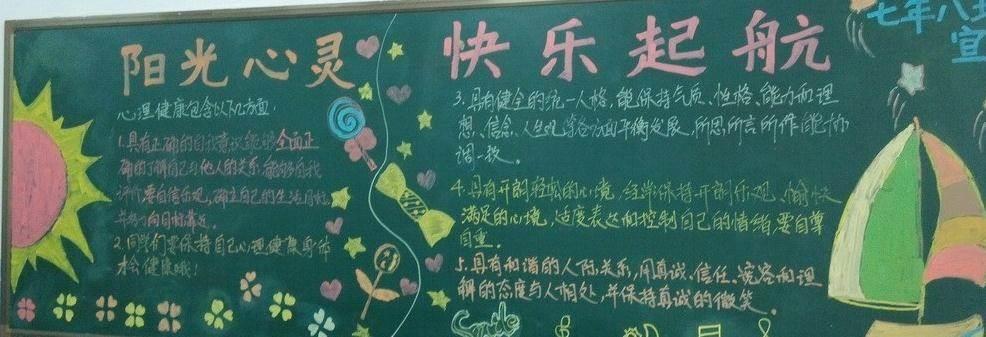 阳光心灵
心理健康包含以下几方面:
1.具有正确的自我意识能够全面正
确的了解自己与他人的关系,能够自我
评价,要自信乐观,确立自己的生活目标,
并努力向目标靠近。
2.同学们要保持自己心理健康身体
才会健康哦!
快乐起航
3.具有健全的统一人格,能保持气质、性格、能力和理
想、信念、人生观等各方面平衡发展,所思所言所作能协
调一致。
4.具有开朗轻松的心境,经常保持开朗乐观、愉快
满足的心境,适度表达和控制自己的情绪,要自尊
自重。
5.具有和谐的人际关系,用真诚、信任、宽容和理
解的态度与人相处,并保持真诚的微笑。
七年八班
宣